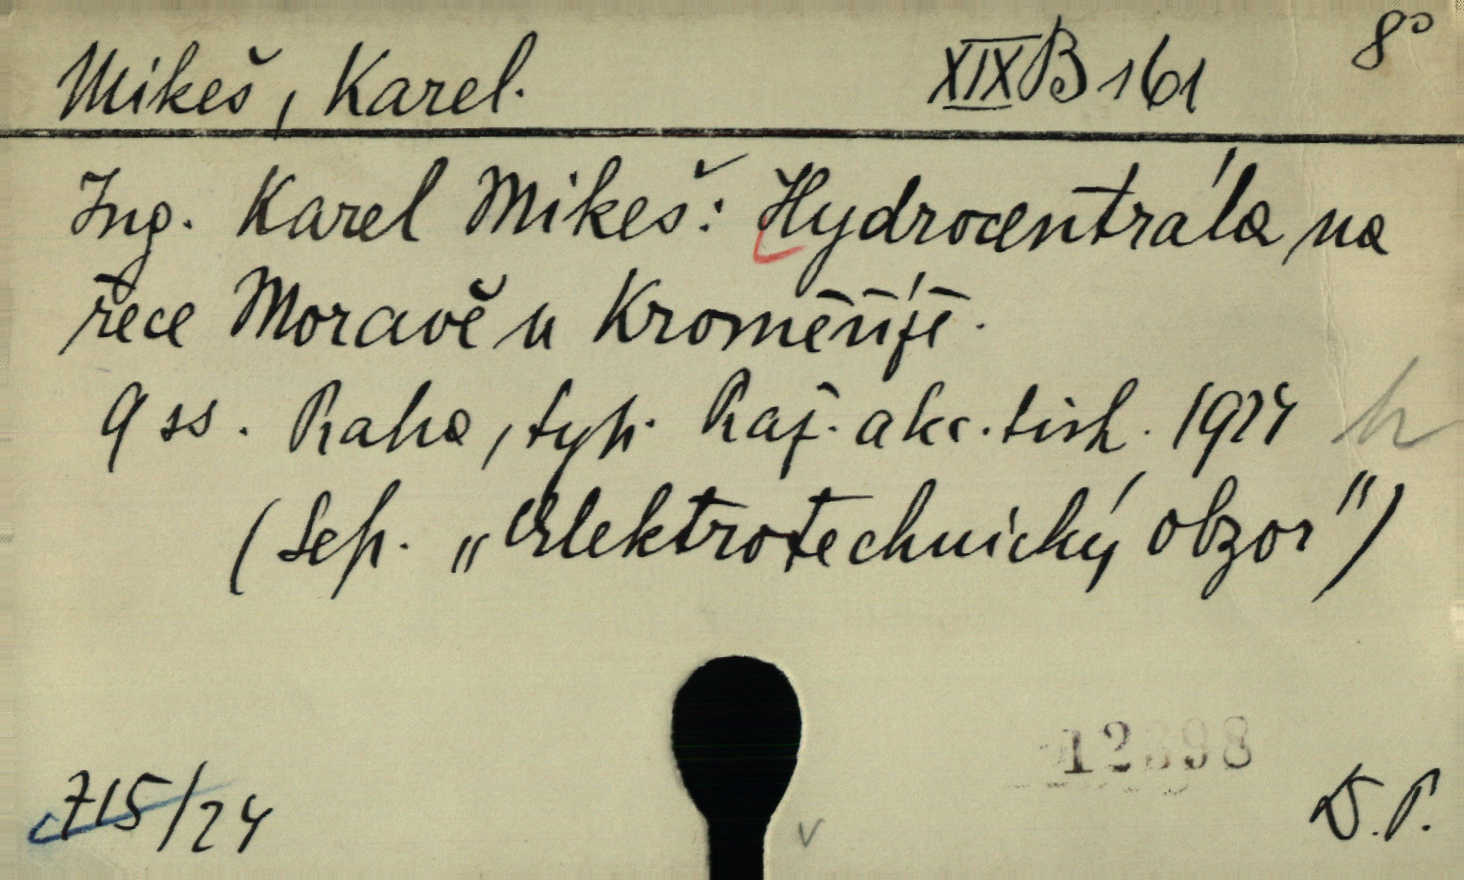 Mikeš, Karel. XIX B 161 8°
Ing. Karel Mikeš: Hydrocentrála na
řece Moravě u Kroměříže.
9 ss. Praha, typ. Praž. akc. tisk. 1924
(Sep. „Elektrotechnický obzor")
12398
715/24 D. P.